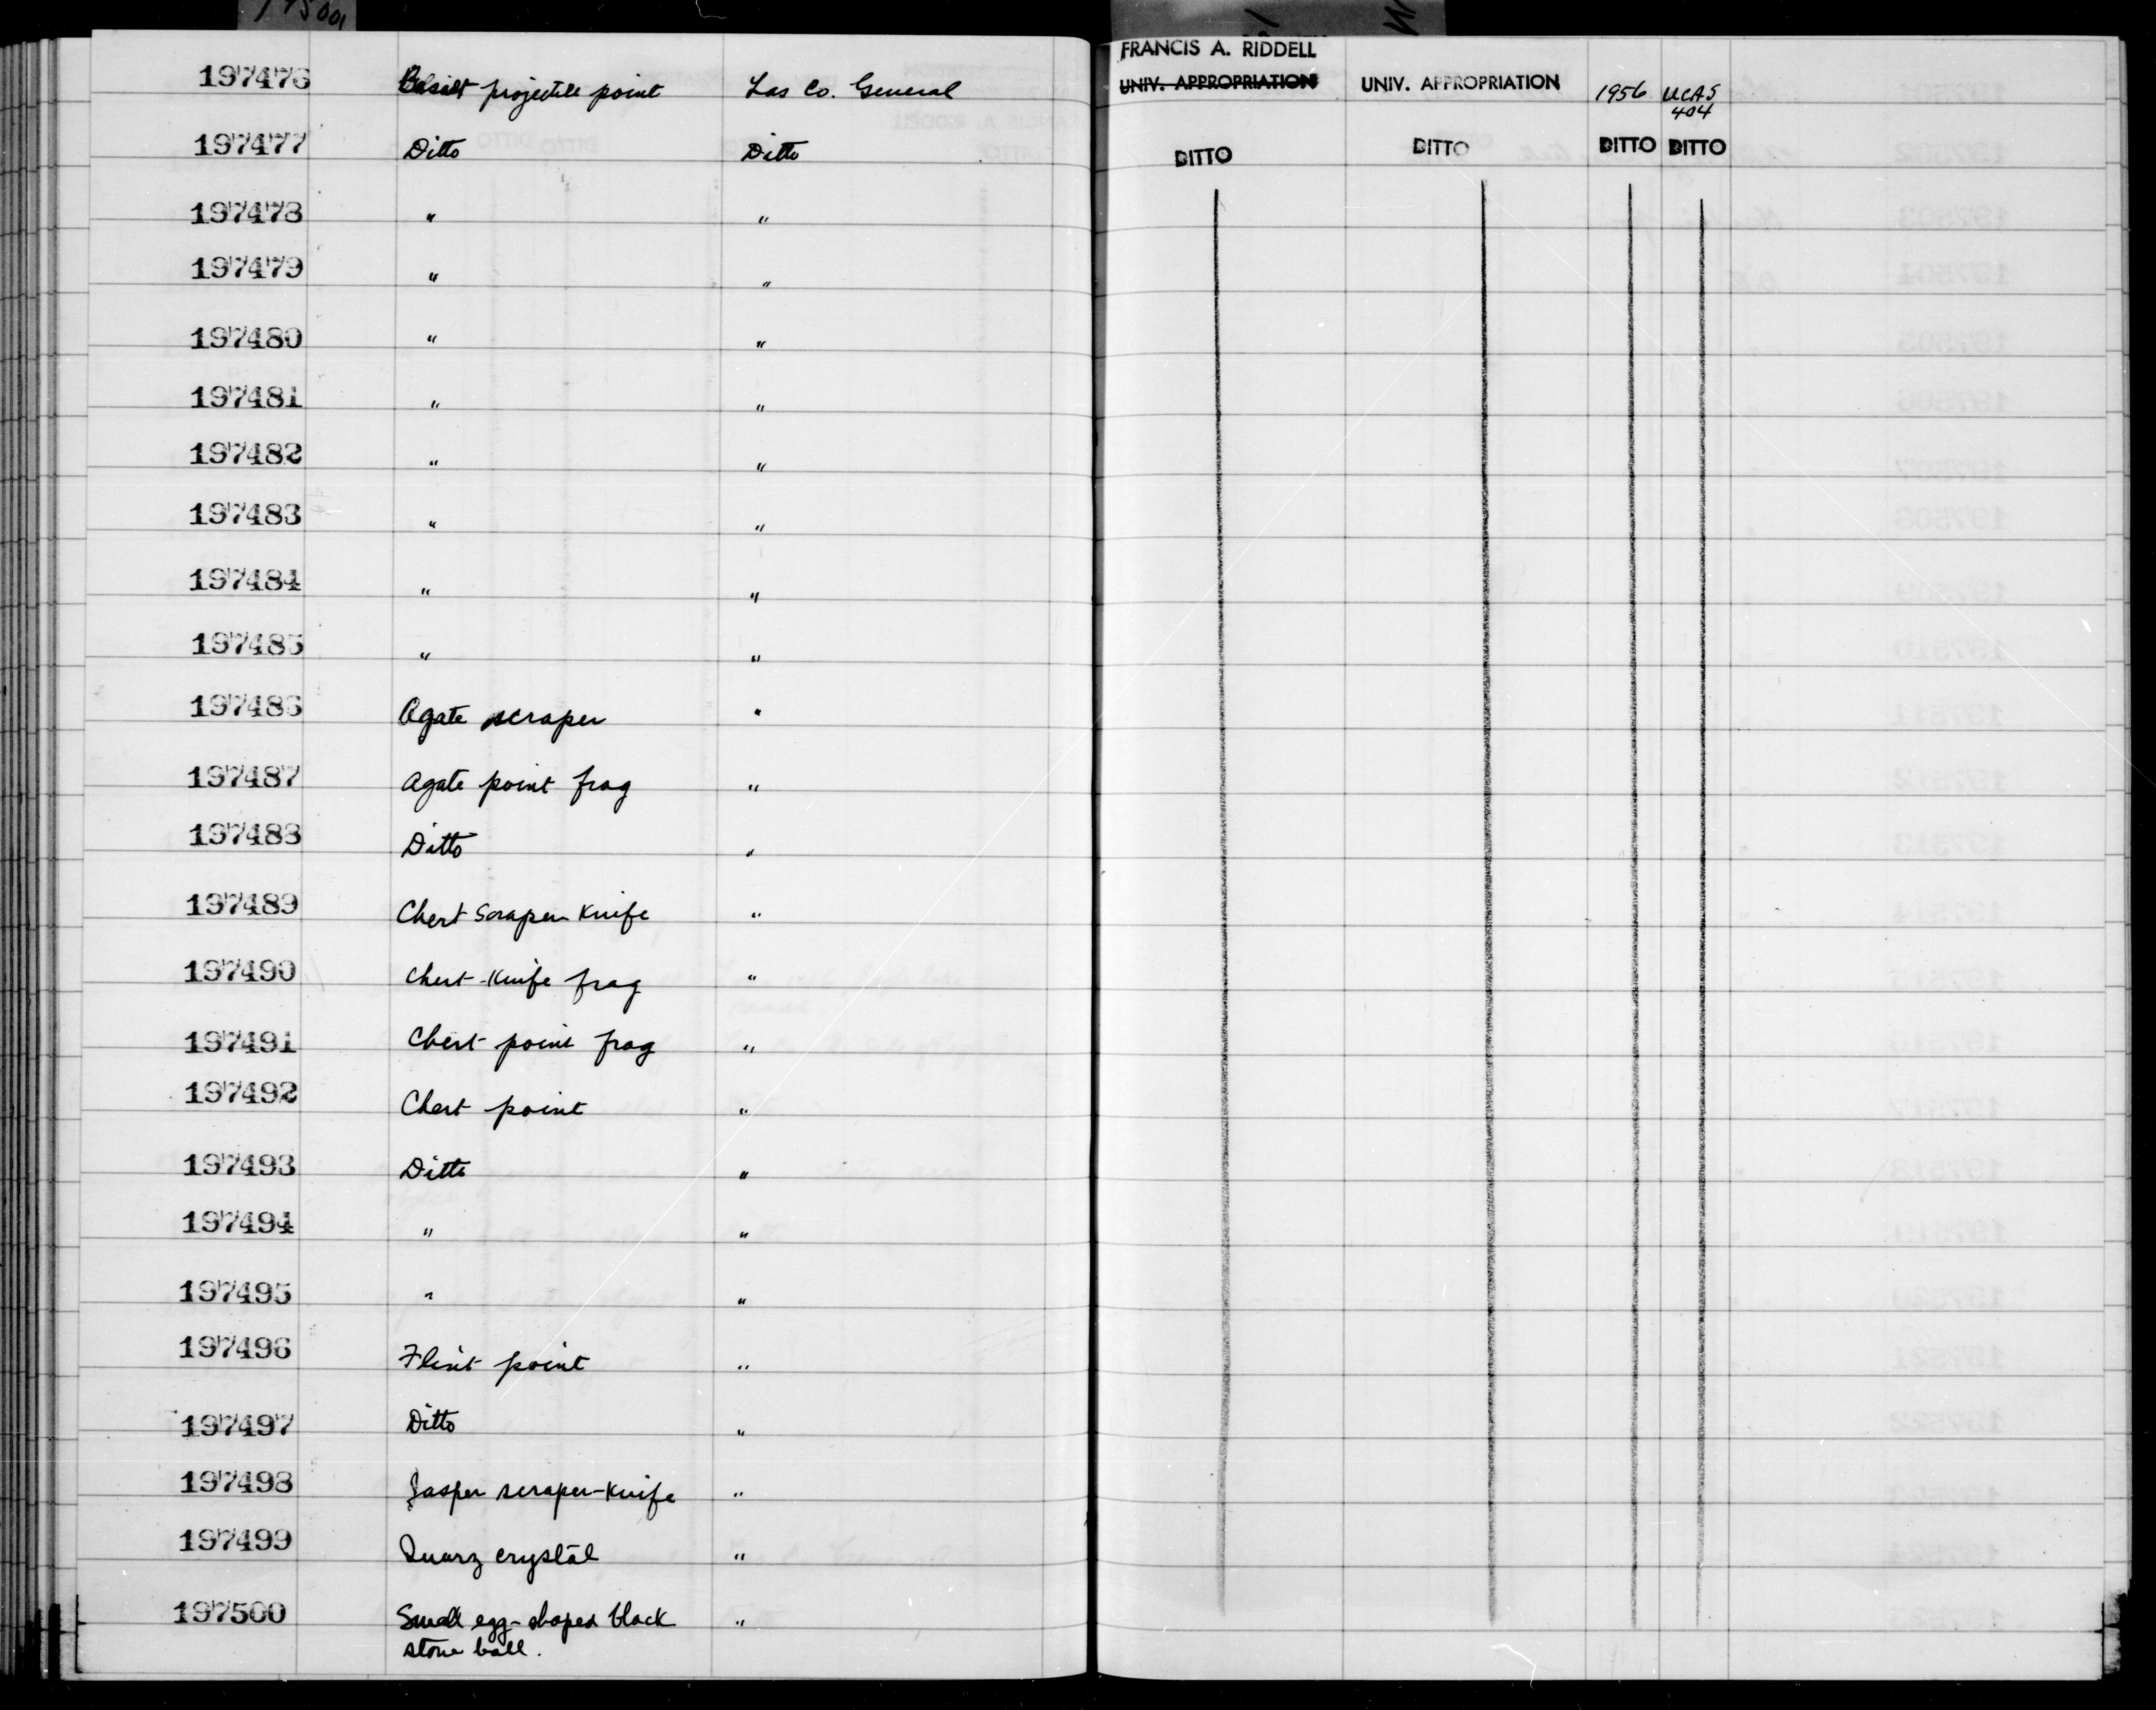 195001
FRANCIS A. RIDDELL
197476 Basalt projectile point Las Co. General UNIV. APPROPRIATION UNIV. APPROPRIATION 1956 UCAS
404
197477 Ditto Ditto DITTO DITTO DITTO DITTO
197478 " "
197479 " "
197480 " "
197481 " "
197482 " "
197483 " "
197484 " "
197485 " "
197486 Agate scraper "
197487 Agate point frag "
197488 Ditto "
197489 Chert Scraper Knife "
197490 Chert-Knife frag "
197491 Chert point frag "
197492 Chert point "
197493 Ditto "
197494 " "
197495 " "
197496 Flint point "
197497 Ditto "
197498 Jasper scraper-Knife "
197499 Quarz crystal "
197500 Small egg-shaped black "
stone ball.